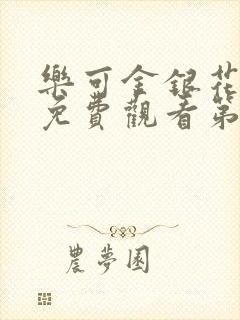 樂可金銀花
免費觀看第
農夢園